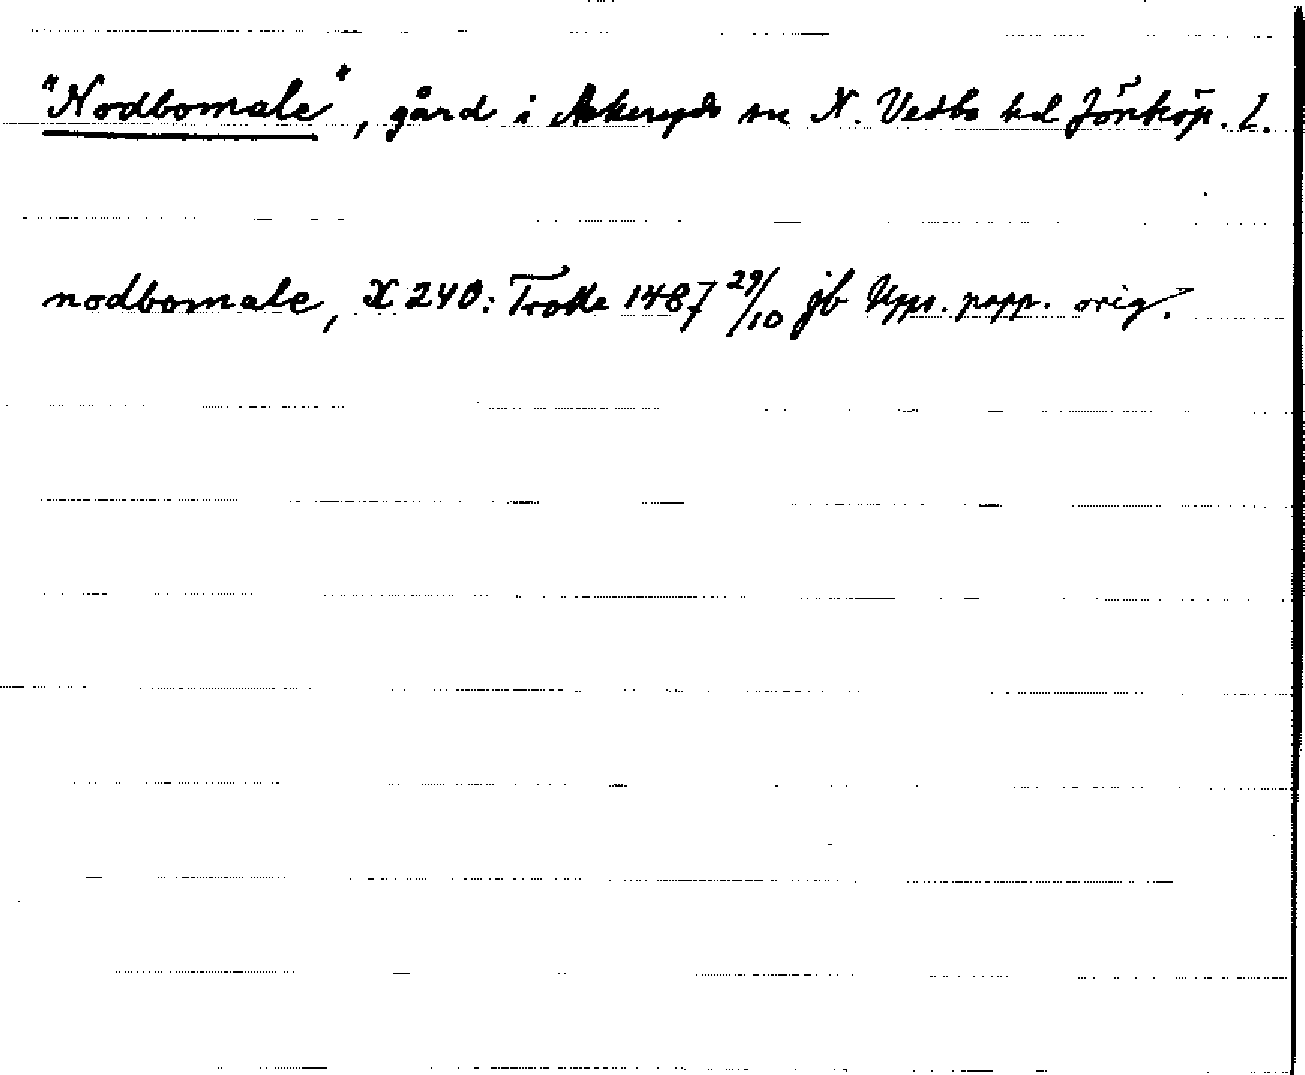 "Nodbomale", gård i Askeryds sn N. Vedbo hd Jönköp. L.
nodbomale, X 240: Trolle 1487 29/10 jb Upps. papp. orig.